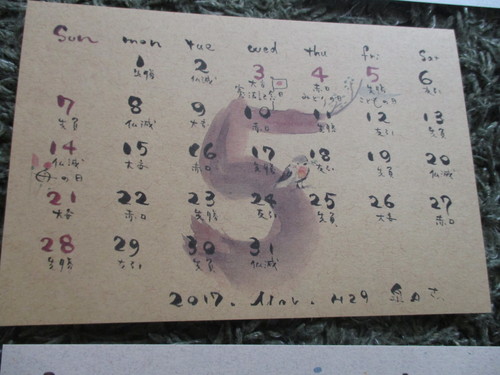 Sun mon tue wed thu fri Sat
1 2 3 4 5 6
先勝 仏滅 大安 赤口 先勝 友引
憲法記念日 みどりの日 こどもの日
7 8 9 10 11 12 13
先負 仏滅 大安 赤口 先勝 友引 先負
14 15 16 17 18 19 20
仏滅 大安 赤口 先勝 友引 先負 仏滅
の日
21 22 23 24 25 26 27
大安 赤口 先勝 友引 先負 大安 赤口
28 29 30 31
先勝 友引 先負 仏滅
5
2017. May. H29